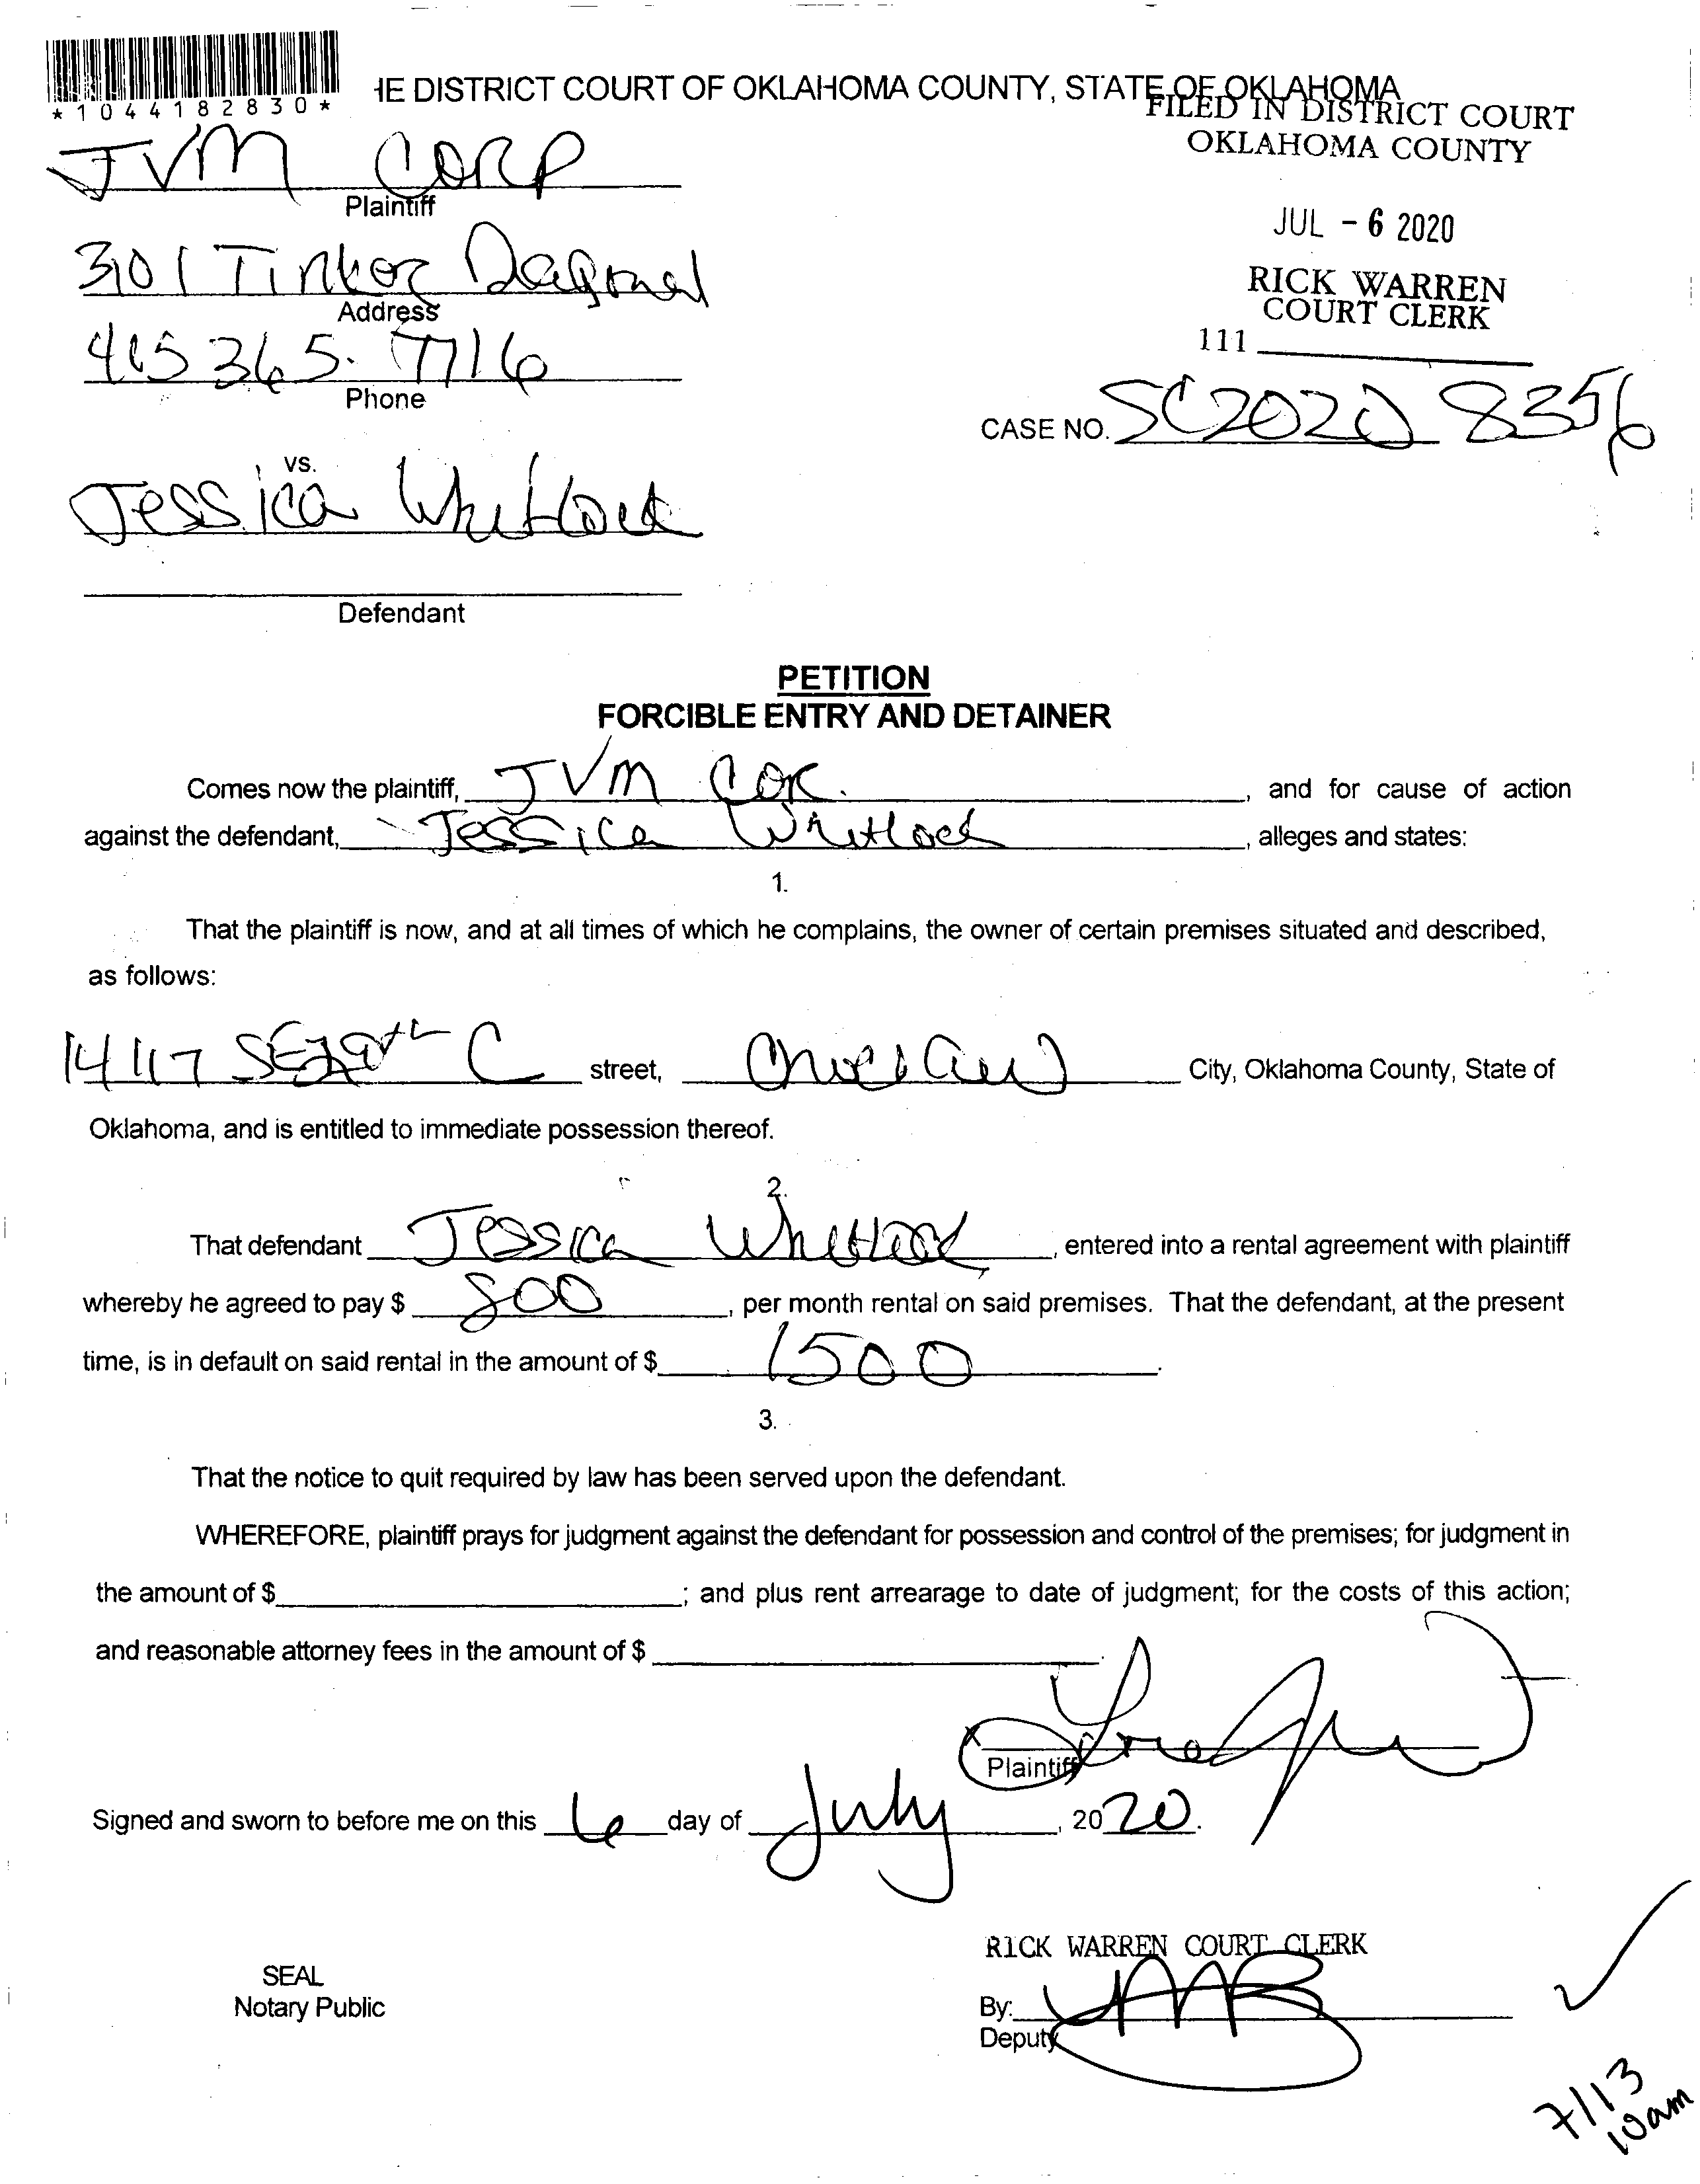 *1044182830*
HE DISTRICT COURT OF OKLAHOMA COUNTY, STATE OF OKLAHOMA
FILED IN DISTRICT COURT
OKLAHOMA COUNTY
JVM CORP
Plaintiff
JUL - 6 2020
301 Tinker Dagonal
Address
RICK WARREN
COURT CLERK
111
405 365. 7716
Phone
CASE NO. SC2020 8356
vs.
Jessica Whitlock
Defendant
PETITION
FORCIBLE ENTRY AND DETAINER
Comes now the plaintiff, JVM COR. , and for cause of action
against the defendant, Jessica Whitlock , alleges and states:
1.
That the plaintiff is now, and at all times of which he complains, the owner of certain premises situated and described,
as follows:
14117 SE 29th C street, Choctaw City, Oklahoma County, State of
Oklahoma, and is entitled to immediate possession thereof.
2.
That defendant Jessica Whitlock , entered into a rental agreement with plaintiff
whereby he agreed to pay $ 800 , per month rental on said premises. That the defendant, at the present
time, is in default on said rental in the amount of $ 1500 .
3.
That the notice to quit required by law has been served upon the defendant.
WHEREFORE, plaintiff prays for judgment against the defendant for possession and control of the premises; for judgment in
the amount of $ ; and plus rent arrearage to date of judgment; for the costs of this action;
and reasonable attorney fees in the amount of $ .
X
Plaintiff
Signed and sworn to before me on this 6 day of July , 2020.
RICK WARREN COURT CLERK
SEAL
Notary Public
By:
Deputy
7/13
10am